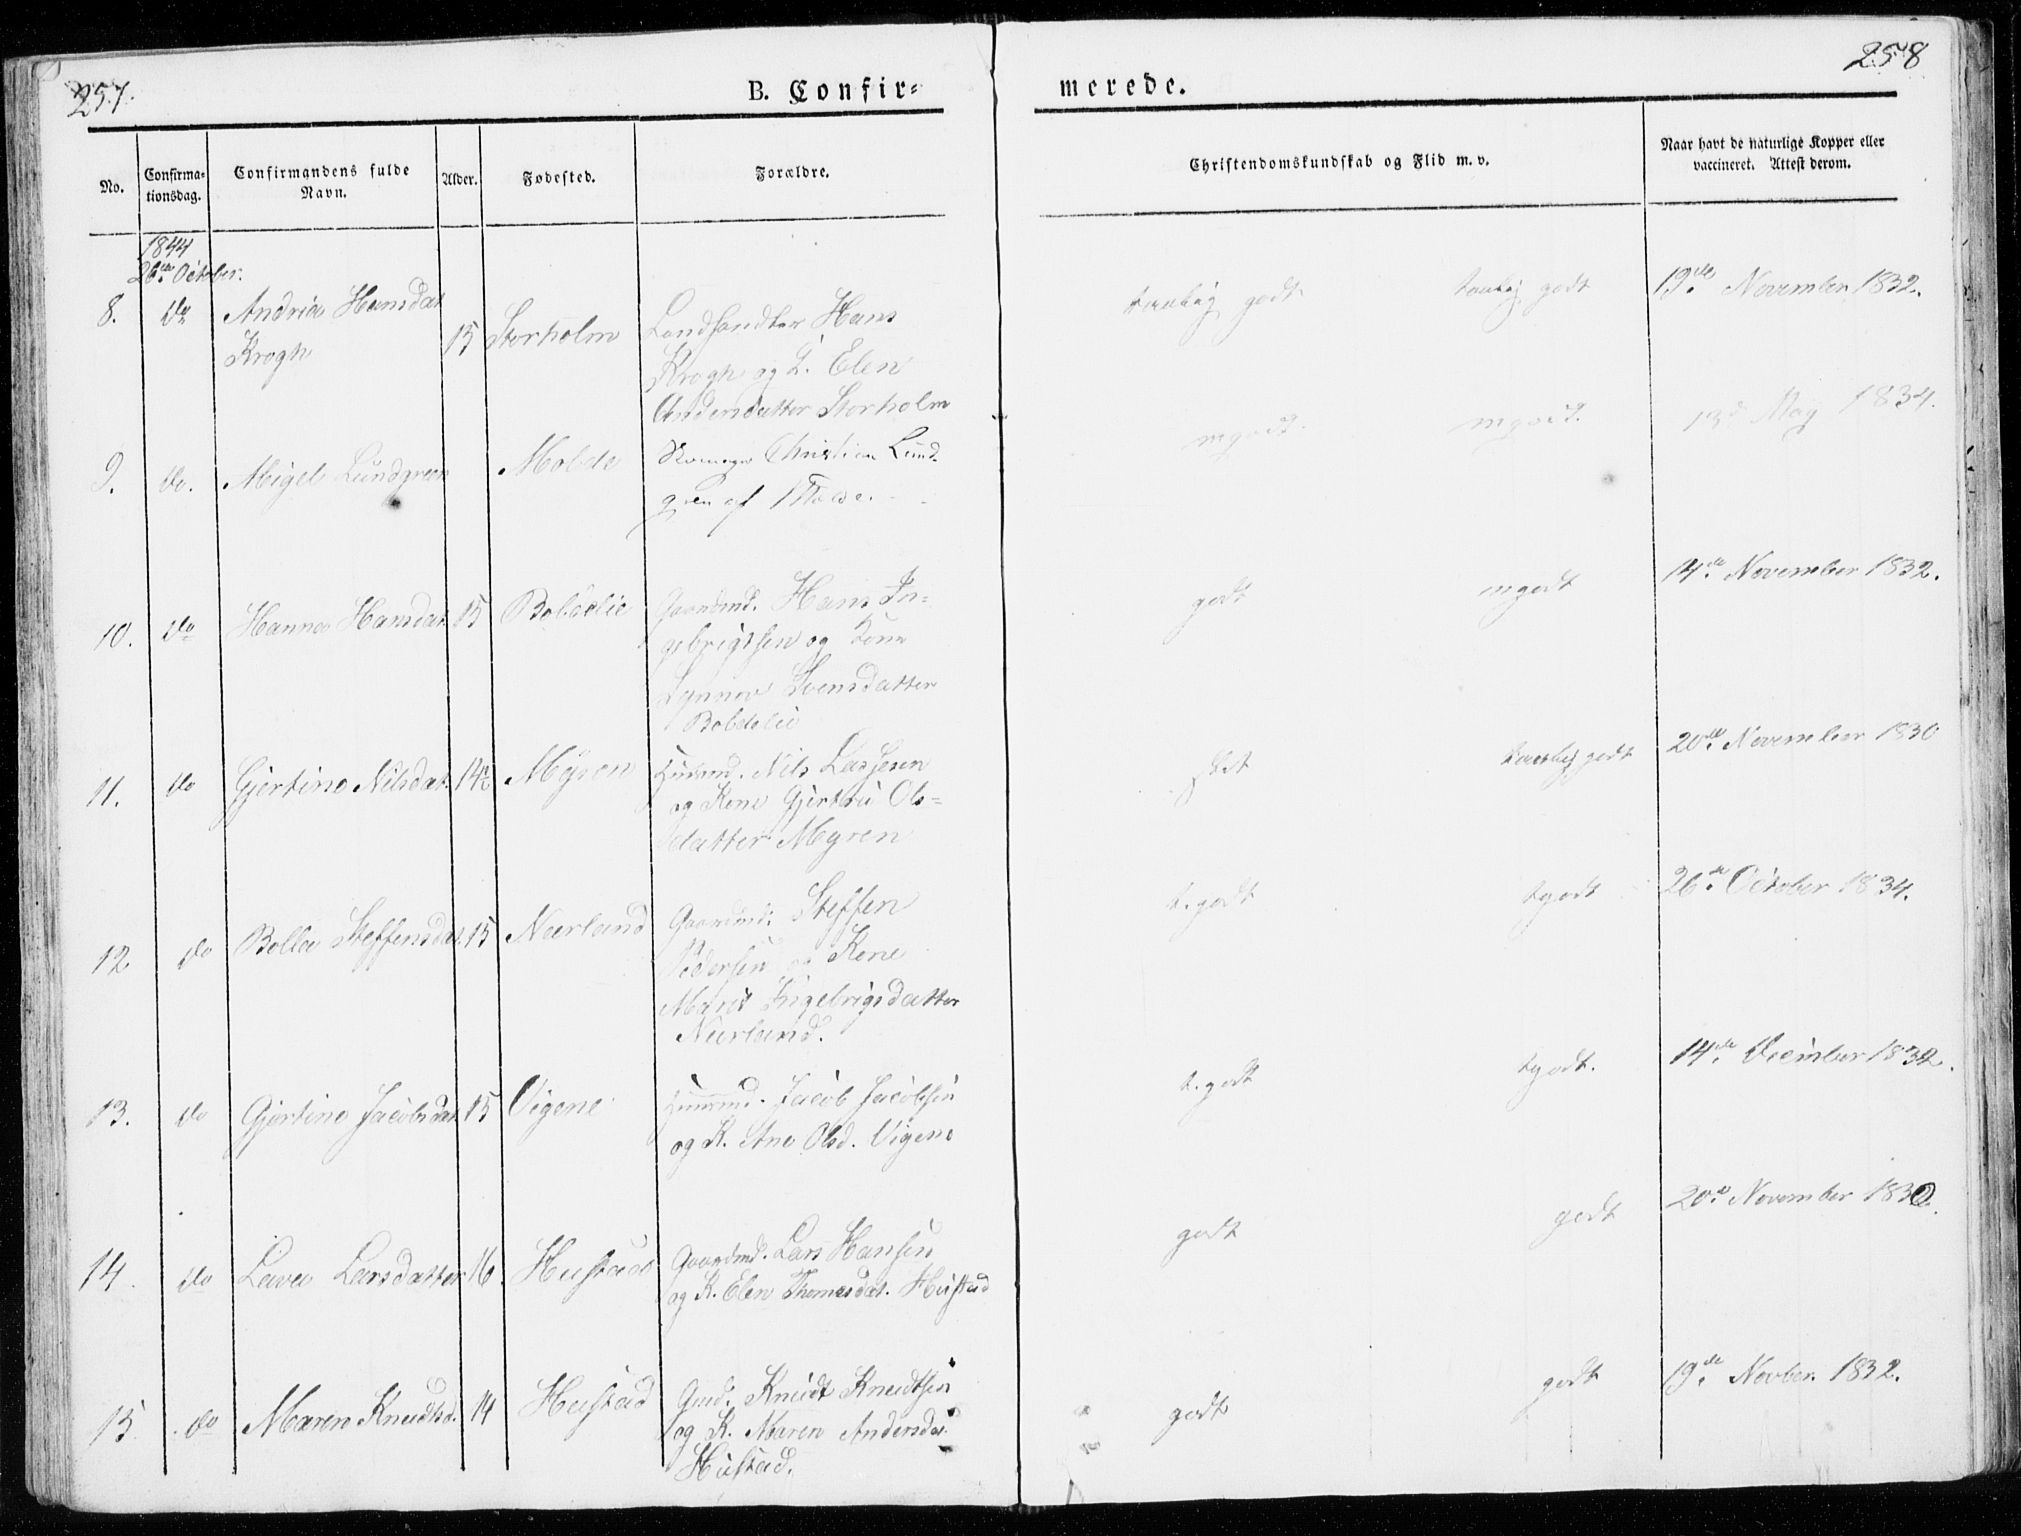 257.
258
B. Confir=
merede.
No.
Confirma=
tionsdag.
Confirmandens fulde
Navn.
Alder.
Fødested.
Forældre.
Christendomskundskab og Flid m. v.
Naar havt de naturlige Kopper eller
vaccineret. Attest derom.
1844
26de October.
8. do Andria Hansdat. 15 Storholm Landhandler Hans
Krogh
Krogh og K. Elen
Andersdatter Storholm
temlig godt temlig godt 19de November 1832.
9. do. Migel Lundgreen Molde Christian Lund=
gren af Molde.
mgodt. mgodt. 13de May 1834.
10. do Hanna Hansdat. 15 Boldelie Gaardmd. Hans In=
gebrigtsen og Kone
Synnov Svensdatter
Boldelie
godt mgodt 14de November 1832.
11. do Gjertine Nilsdat. 14½ Myren Huusmd. Nils Lassesen
og Kone Gjertru Ols=
datter Myren
slet temlig godt 20de November 1830
12 do Bolla Steffensdat. 15 Nerland Gaardmd. Steffen
Pedersen og Kone
Marit Ingebrigsdatter
Nerland.
t. godt tgodt 26de October 1834.
13. do Gjertine Jacobsdat. 15 Vigene Huusmd. Jacob Jacobsen
og K. Ane Olsd. Vigene
t. godt tgodt. 14de December 1832.
14. do Lava Larsdatter 16 Hustad Gaardmd. Lars Hansen
og K. Elen Thomasdat. Hustad
godt godt 20de November 1830.
15. do Maren Knudtsd. 14 Hustad Gmd. Knudt Knudtsen
og K. Maren Andersdat.
Hustad.
godt godt 19de Novber. 1832.